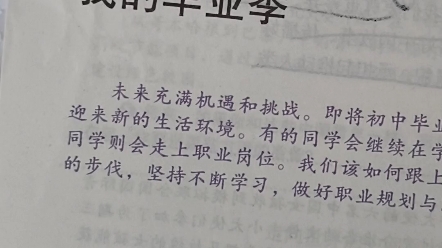 我的毕业季
未来充满机遇和挑战。即将初中毕业
迎来新的生活环境。有的同学会继续在学
同学则会走上职业岗位。我们该如何跟上
的步伐，坚持不断学习，做好职业规划与